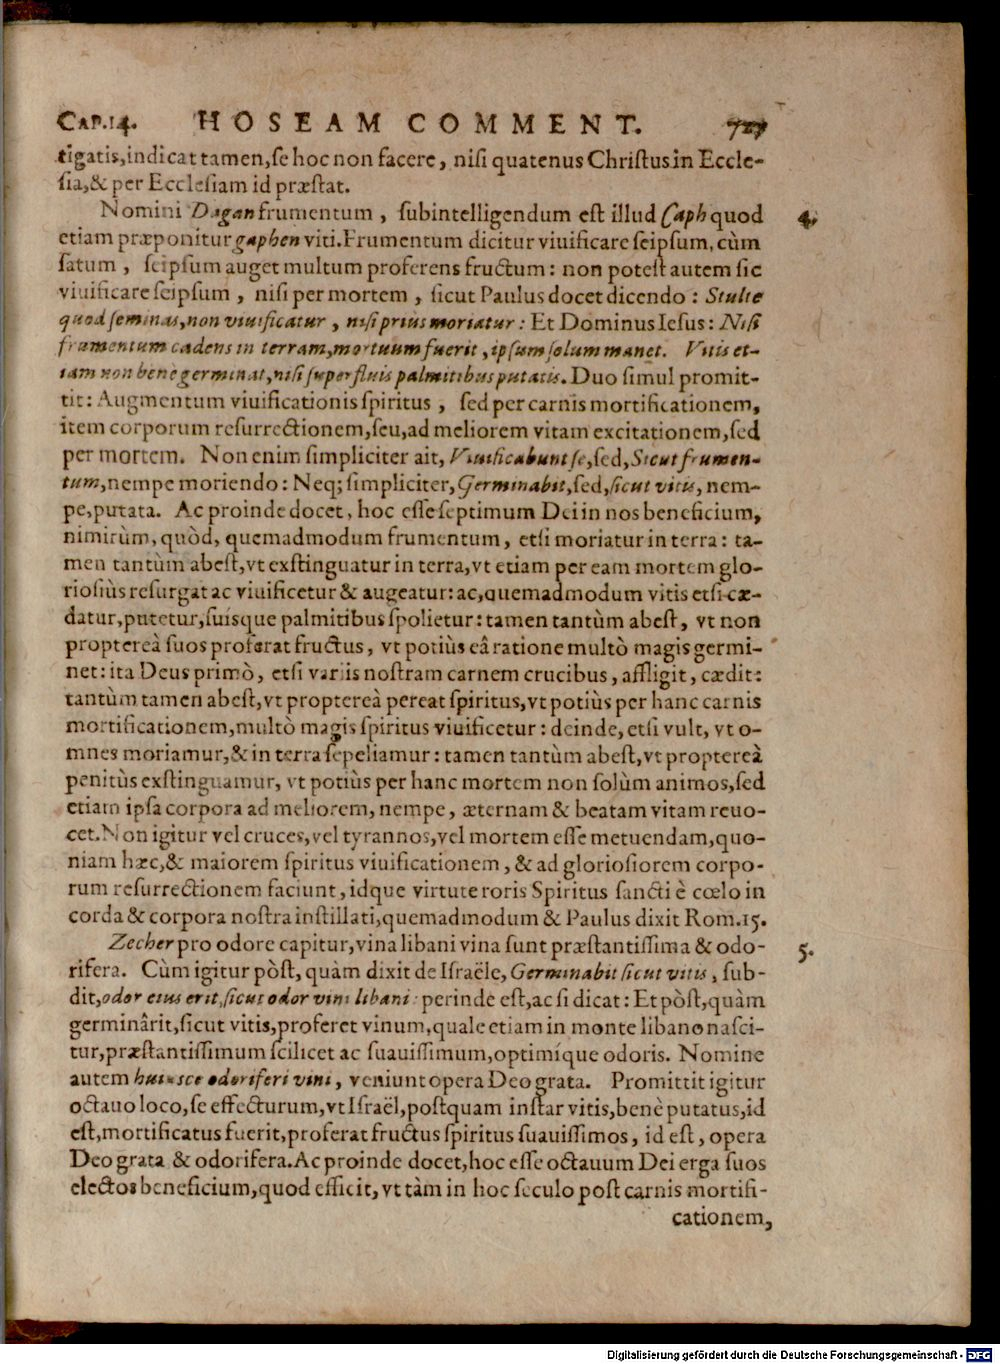 CAP. 14. HOSEAM COMMENT. 727
tigatis, indicat tamen, se hoc non facere, nisi quatenus Christus in Eccle-
sia, & per Ecclesiam id præstat.
Nomini Dagan frumentum, subintelligendum est illud Caph quod 4.
etiam præponitur gaphen viti. Frumentum dicitur viuificare seipsum, cùm
satum, seipsum auget multum proferens fructum: non potest autem sic
viuificare seipsum, nisi per mortem, sicut Paulus docet dicendo: Stulte
quod seminas, non viuificatur, nisi prius moriatur: Et Dominus Iesus: Nisi
frumentum cadens in terram, mortuum fuerit, ipsum solum manet. Vitis et-
iam non benè germinat, nisi superfluis palmitibus putatis. Duo simul promit-
tit: Augmentum viuificationis spiritus, sed per carnis mortificationem,
item corporum resurrectionem, seu, ad meliorem vitam excitationem, sed
per mortem. Non enim simpliciter ait, Viuificabunt se, sed, Sicut frumen-
tum, nempe moriendo: Neq; simpliciter, Germinabit, sed, sicut vitis, nem-
pe, putata. Ac proinde docet, hoc esse septimum Dei in nos beneficium,
nimirùm, quòd, quemadmodum frumentum, etsi moriatur in terra: ta-
men tantùm abest, vt exstinguatur in terra, vt etiam per eam mortem glo-
riosiùs resurgat ac viuificetur & augeatur: ac, quemadmodum vitis etsi cæ-
datur, putetur, suisque palmitibus spolietur: tamen tantùm abest, vt non
proptereà suos proferat fructus, vt potiùs eâ ratione multò magis germi-
net: ita Deus primò, etsi variis nostram carnem crucibus, affligit, cædit:
tantùm tamen abest, vt proptereà pereat spiritus, vt potiùs per hanc carnis
mortificationem, multò magis spiritus viuificetur: deinde, etsi vult, vt o-
mnes moriamur, & in terra sepeliamur: tamen tantùm abest, vt proptereà
penitùs exstinguamur, vt potiùs per hanc mortem non solùm animos, sed
etiam ipsa corpora ad meliorem, nempe, æternam & beatam vitam reuo-
cet. Non igitur vel cruces, vel tyrannos, vel mortem esse metuendam, quo-
niam hæc, & maiorem spiritus viuificationem, & ad gloriosiorem corpo-
rum resurrectionem faciunt, idque virtute roris Spiritus sancti è cœlo in
corda & corpora nostra instillati, quemadmodum & Paulus dixit Rom. 15.
Zecher pro odore capitur, vina libani vina sunt præstantissima & odo- 5.
rifera. Cùm igitur pòst, quàm dixit de Israële, Germinabit sicut vitis, sub-
dit, odor eius erit, sicut odor vini libani: perinde est, ac si dicat: Et pòst, quàm
germinârit, sicut vitis, proferet vinum, quale etiam in monte libano nasci-
tur, præstantissimum scilicet ac suauissimum, optimíque odoris. Nomine
autem huiusce odoriferi vini, veniunt opera Deo grata. Promittit igitur
octauo loco, se effecturum, vt Israël, postquam instar vitis, benè putatus, id
est, mortificatus fuerit, proferat fructus spiritus suauissimos, id est, opera
Deo grata & odorifera. Ac proinde docet, hoc esse octauum Dei erga suos
electos beneficium, quod efficit, vt tàm in hoc seculo post carnis mortifi-
cationem,
Digitalisierung gefördert durch die Deutsche Forschungsgemeinschaft - DFG